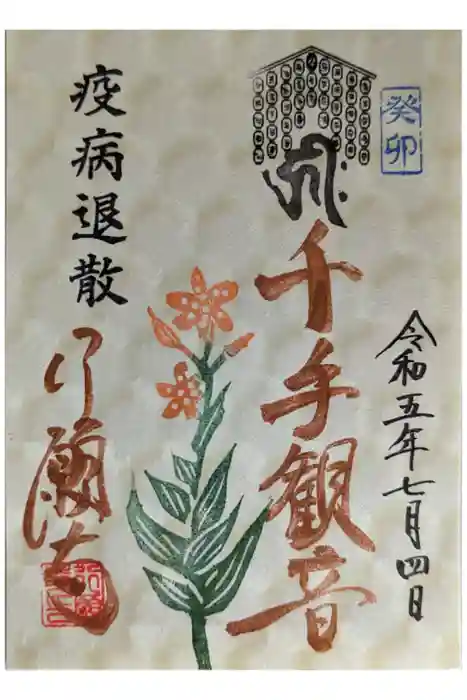 癸卯
令和五年七月四日
千手観音
疫病退散
行願寺